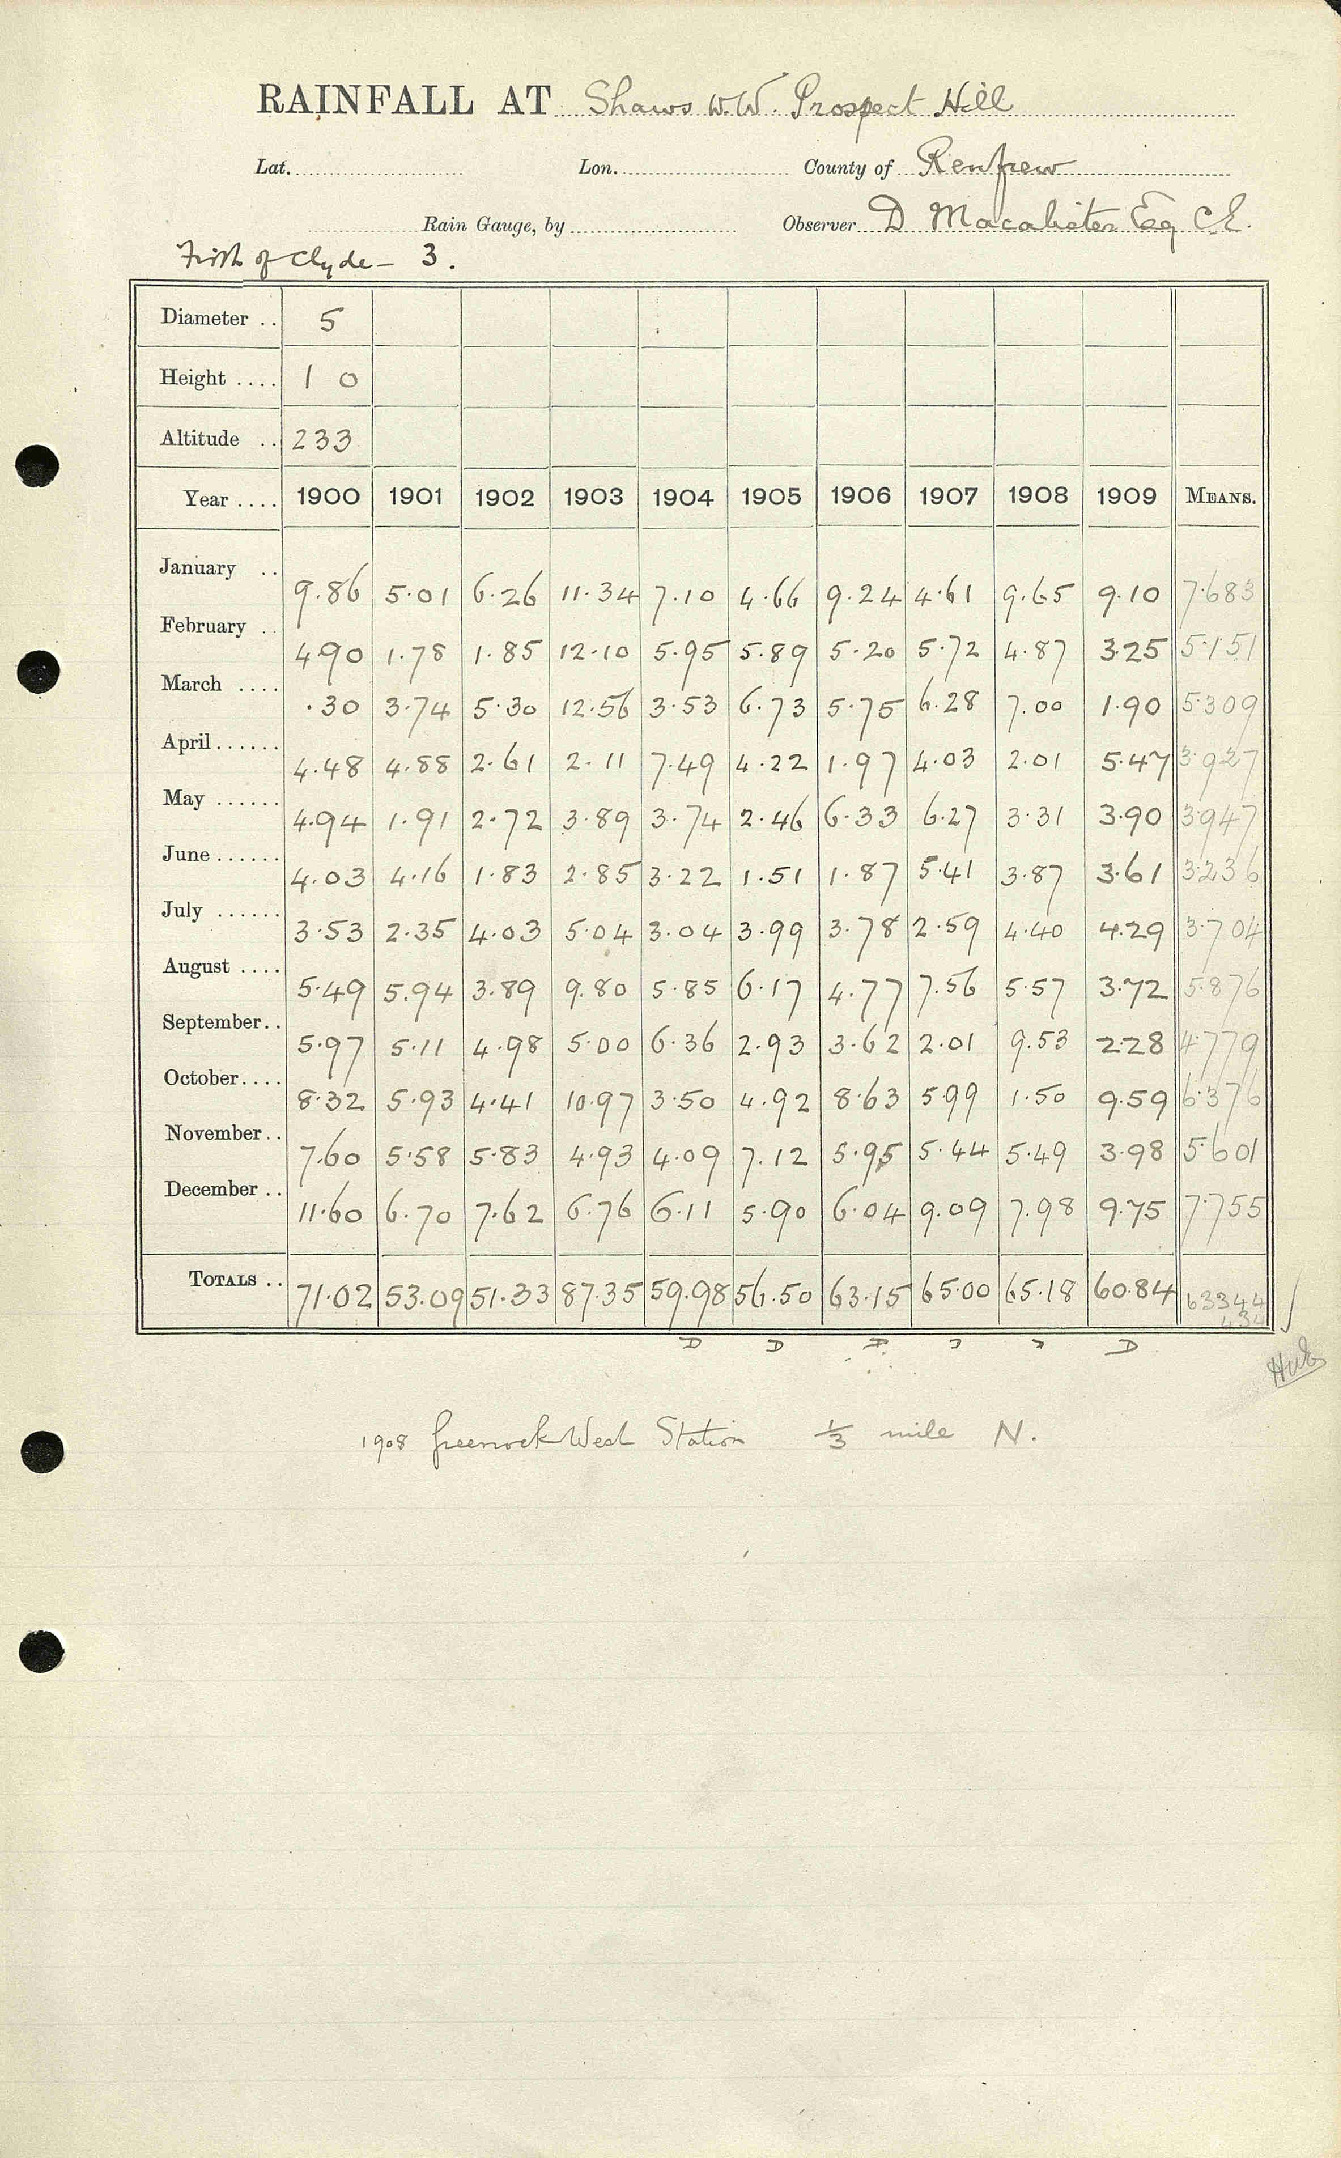 RAINFALL AT Shaws W.W. Prospect Hill
Lat. Lon. County of Renfrew
Rain Gauge, by Observer D Macalister Esq C.E.
Firth of Clyde - 3.
Diameter .. 5
Height .... 1 0
Altitude .. 233
Year .... 1900 1901 1902 1903 1904 1905 1906 1907 1908 1909 MEANS.
January .. 9.86 5.01 6.26 11.34 7.10 4.66 9.24 4.61 9.65 9.10 7.683
February .. 4.90 1.78 1.85 12.10 5.95 5.89 5.20 5.72 4.87 3.25 5.151
March .... .30 3.74 5.30 12.56 3.53 6.73 5.75 6.28 7.00 1.90 5.309
April...... 4.48 4.88 2.61 2.11 7.49 4.22 1.97 4.03 2.01 5.47 3.927
May ...... 4.94 1.91 2.72 3.89 3.74 2.46 6.33 6.27 3.31 3.90 3.947
June...... 4.03 4.16 1.83 2.85 3.22 1.51 1.87 5.41 3.87 3.61 3.236
July ...... 3.53 2.35 4.03 5.04 3.04 3.99 3.78 2.59 4.40 4.29 3.704
August .... 5.49 5.94 3.89 9.80 5.85 6.17 4.77 7.56 5.57 3.72 5.876
September.. 5.97 5.11 4.98 5.00 6.36 2.93 3.62 2.01 9.53 2.28 4.779
October.... 8.32 5.93 4.41 10.97 3.50 4.92 8.63 5.99 1.50 9.59 6.376
November.. 7.60 5.58 5.83 4.93 4.09 7.12 5.95 5.44 5.49 3.98 5.601
December .. 11.60 6.70 7.62 6.76 6.11 5.90 6.04 9.09 7.98 9.75 7.755
TOTALS .. 71.02 53.09 51.33 87.35 59.98 56.50 63.15 65.00 65.18 60.84 63344
434
D D D D D D
1908 Greenock West Station 1/3 mile N.